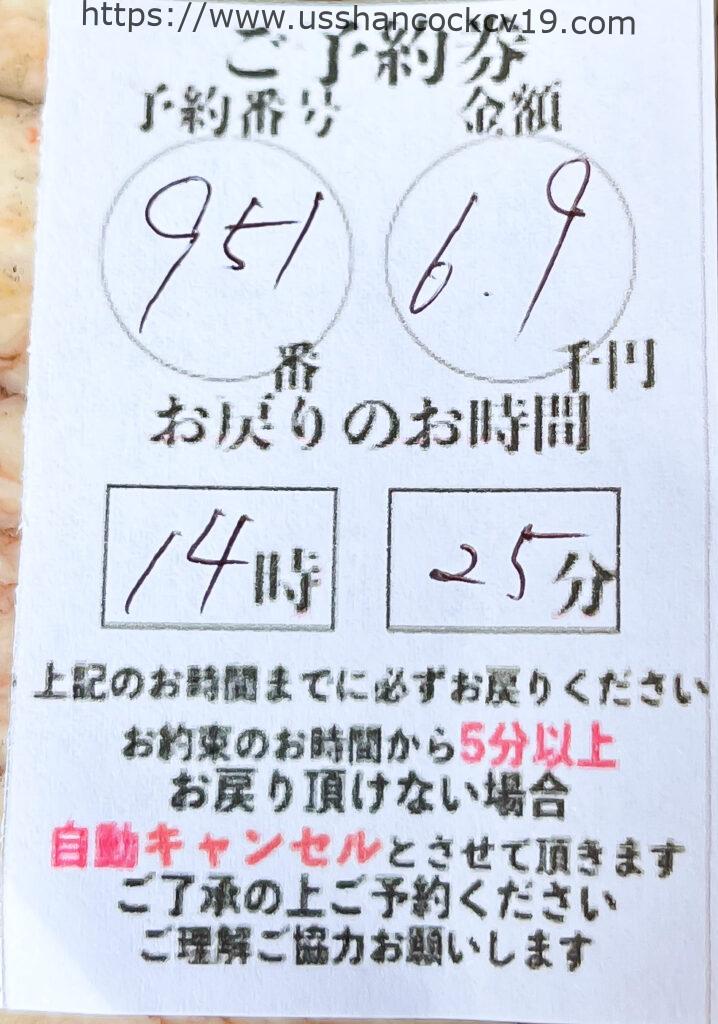 https://www.usshancockcv19.com
ご予約券
予約番号 金額
951 6.9
番 千円
お戻りのお時間
14時 25分
上記のお時間までに必ずお戻りください
お約束のお時間から5分以上
お戻り頂けない場合
自動キャンセルとさせて頂きます
ご了承の上ご予約ください
ご理解ご協力お願いします